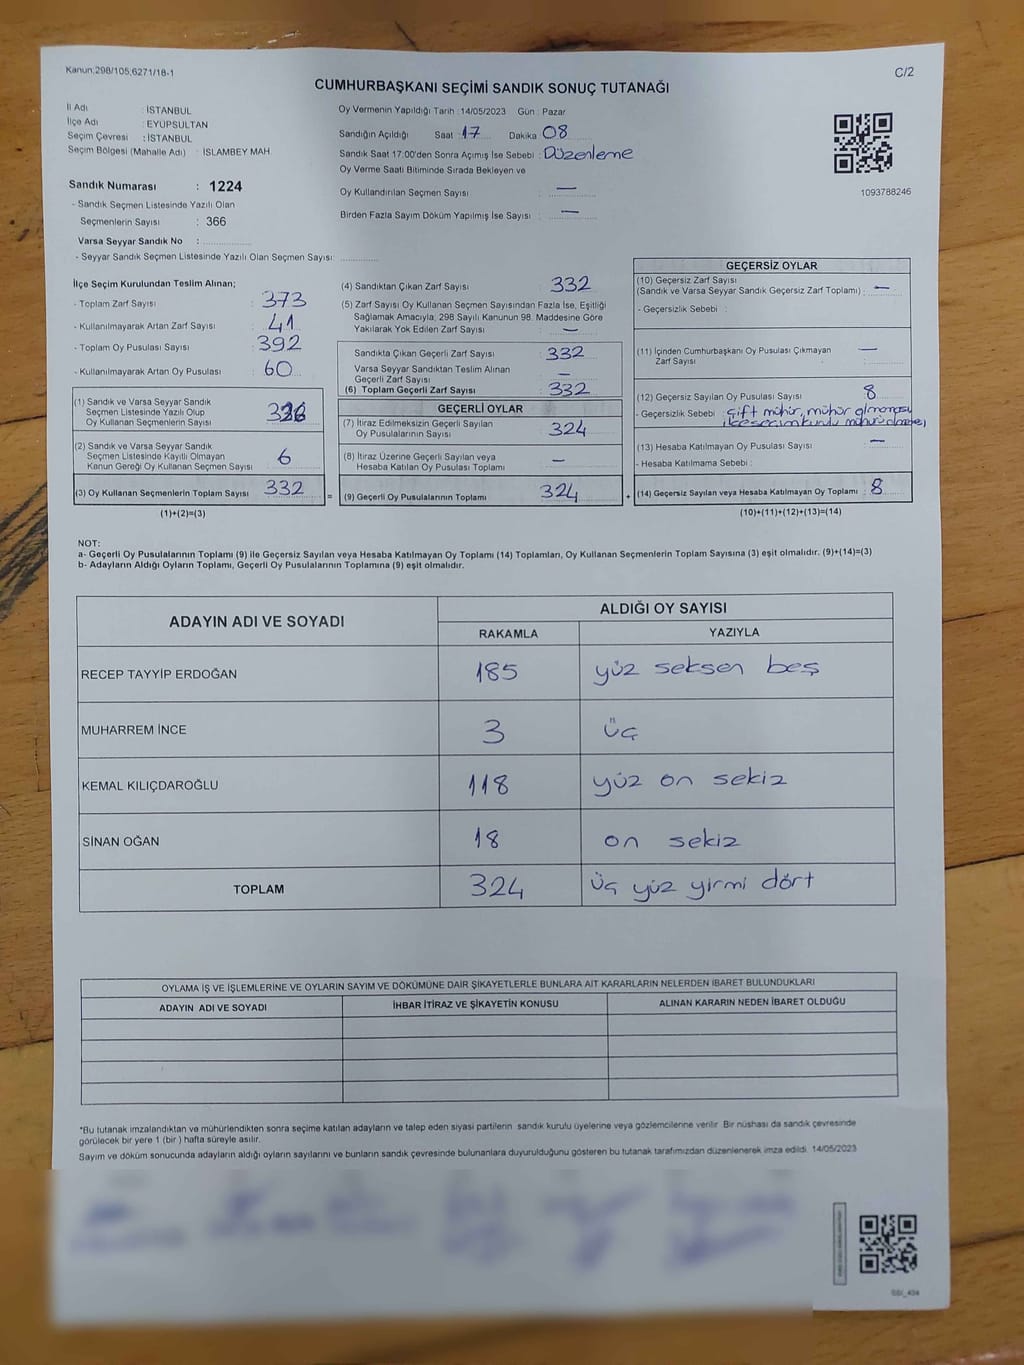 Kanun:298/105;6271/18-1
C/2
CUMHURBAŞKANI SEÇİMİ SANDIK SONUÇ TUTANAĞI
İl Adı : İSTANBUL
İlçe Adı : EYÜPSULTAN
Seçim Çevresi : İSTANBUL
Seçim Bölgesi (Mahalle Adı) : İSLAMBEY MAH.
Sandık Numarası : 1224
- Sandık Seçmen Listesinde Yazılı Olan
Seçmenlerin Sayısı : 366
Varsa Seyyar Sandık No :
- Seyyar Sandık Seçmen Listesinde Yazılı Olan Seçmen Sayısı:
Oy Vermenin Yapıldığı Tarih : 14/05/2023 Gün : Pazar
Sandığın Açıldığı Saat : 17 Dakika 08
Sandık Saat 17:00'den Sonra Açımış İse Sebebi : Düzenleme
Oy Verme Saati Bitiminde Sırada Bekleyen ve
Oy Kullandırılan Seçmen Sayısı : —
Birden Fazla Sayım Döküm Yapılmış İse Sayısı : —
1093788246
İlçe Seçim Kurulundan Teslim Alınan;
- Toplam Zarf Sayısı : 373
- Kullanılmayarak Artan Zarf Sayısı : 41
- Toplam Oy Pusulası Sayısı : 392
- Kullanılmayarak Artan Oy Pusulası : 60
(1) Sandık ve Varsa Seyyar Sandık
Seçmen Listesinde Yazılı Olup
Oy Kullanan Seçmenlerin Sayısı :
(2) Sandık ve Varsa Seyyar Sandık
Seçmen Listesinde Kayıtlı Olmayan
Kanun Gereği Oy Kullanan Seçmen Sayısı : 6
(3) Oy Kullanan Seçmenlerin Toplam Sayısı : 332
(1)+(2)=(3)
=
(4) Sandıktan Çıkan Zarf Sayısı : 332
(5) Zarf Sayısı Oy Kullanan Seçmen Sayısından Fazla İse, Eşitliği
Sağlamak Amacıyla, 298 Sayılı Kanunun 98. Maddesine Göre
Yakılarak Yok Edilen Zarf Sayısı : —
Sandıkta Çıkan Geçerli Zarf Sayısı : 332
Varsa Seyyar Sandıktan Teslim Alınan
Geçerli Zarf Sayısı : —
(6) Toplam Geçerli Zarf Sayısı : 332
GEÇERLİ OYLAR
(7) İtiraz Edilmeksizin Geçerli Sayılan
Oy Pusulalarının Sayısı : 324
(8) İtiraz Üzerine Geçerli Sayılan veya
Hesaba Katılan Oy Pusulası Toplamı : —
(9) Geçerli Oy Pusulalarının Toplamı : 324
+
GEÇERSİZ OYLAR
(10) Geçersiz Zarf Sayısı
(Sandık ve Varsa Seyyar Sandık Geçersiz Zarf Toplamı) : —
- Geçersizlik Sebebi :
(11) İçinden Cumhurbaşkanı Oy Pusulası Çıkmayan
Zarf Sayısı : —
(12) Geçersiz Sayılan Oy Pusulası Sayısı : 8
- Geçersizlik Sebebi : Çift mühür, mühür olmaması,
(13) Hesaba Katılmayan Oy Pusulası Sayısı : —
- Hesaba Katılmama Sebebi :
(14) Geçersiz Sayılan veya Hesaba Katılmayan Oy Toplamı : 8
(10)+(11)+(12)+(13)=(14)
NOT:
a- Geçerli Oy Pusulalarının Toplamı (9) ile Geçersiz Sayılan veya Hesaba Katılmayan Oy Toplamı (14) Toplamları, Oy Kullanan Seçmenlerin Toplam Sayısına (3) eşit olmalıdır. (9)+(14)=(3)
b- Adayların Aldığı Oyların Toplamı, Geçerli Oy Pusulalarının Toplamına (9) eşit olmalıdır.
ADAYIN ADI VE SOYADI
ALDIĞI OY SAYISI
RAKAMLA YAZIYLA
RECEP TAYYİP ERDOĞAN 185 yüz seksen beş
MUHARREM İNCE 3 üç
KEMAL KILIÇDAROĞLU 118 yüz on sekiz
SİNAN OĞAN 18 on sekiz
TOPLAM 324 üç yüz yirmi dört
OYLAMA İŞ VE İŞLEMLERİNE VE OYLARIN SAYIM VE DÖKÜMÜNE DAİR ŞİKAYETLERLE BUNLARA AİT KARARLARIN NELERDEN İBARET BULUNDUKLARI
ADAYIN ADI VE SOYADI İHBAR İTİRAZ VE ŞİKAYETİN KONUSU ALINAN KARARIN NEDEN İBARET OLDUĞU
*Bu tutanak imzalandıktan ve mühürlendikten sonra seçime katılan adayların ve talep eden siyasi partilerin sandık kurulu üyelerine veya gözlemcilerine verilir. Bir nüshası da sandık çevresinde
görülecek bir yere 1 (bir) hafta süreyle asılır.
Sayım ve döküm sonucunda adayların aldığı oyların sayılarını ve bunların sandık çevresinde bulunanlara duyurulduğunu gösteren bu tutanak tarafımızdan düzenlenerek imza edildi. 14/05/2023